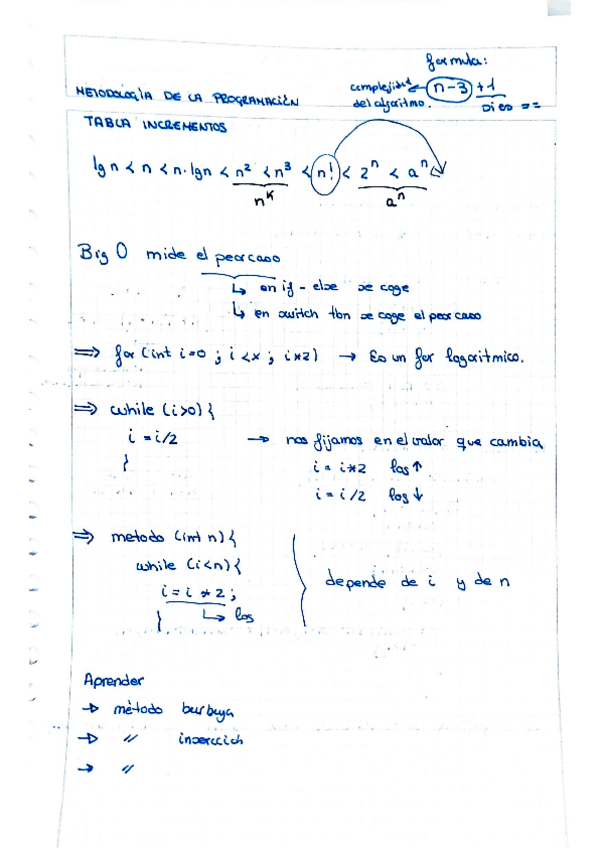 formula:
complejidad ← n-3 +1
del algoritmo.
METODOLOGÍA DE LA PROGRAMACIÓN
TABLA INCREMENTOS
lg n < n < n·lgn < n² < n³ < n! < 2ⁿ < aⁿ
nᴷ aⁿ
Big O mide el peor caso
↳ en if - else se coge
↳ en switch tbn se coge el peor caso
⇒ for (int i=0 ; i<x ; i*2) → Es un for logaritmico.
⇒ while (i>0) {
i = i/2 → nos fijamos en el valor que cambia
} i = i*2 log ↑
i = i/2 log ↓
⇒ metodo (int n) {
while (i<n) {
i = i * 2 ; depende de i y de n
} ↳ log
Aprender
→ método burbuja
→ " insercción
→ "